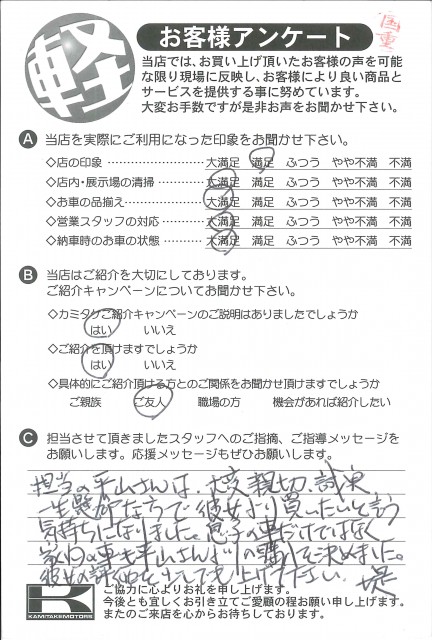 軽
お客様アンケート
国重
当店では、お買い上げ頂いたお客様の声を可能
な限り現場に反映し、お客様により良い商品と
サービスを提供する事に努めています。
大変お手数ですが是非お声をお聞かせ下さい。
A 当店を実際にご利用になった印象をお聞かせ下さい。
◇店の印象 ………………… 大満足 満足 ふつう やや不満 不満
◇店内・展示場の清掃 ……… 大満足 満足 ふつう やや不満 不満
◇お車の品揃え …………… 大満足 満足 ふつう やや不満 不満
◇営業スタッフの対応 ……… 大満足 満足 ふつう やや不満 不満
◇納車時のお車の状態 ……… 大満足 満足 ふつう やや不満 不満
B 当店はご紹介を大切にしております。
ご紹介キャンペーンについてお聞かせ下さい。
◇カミタケご紹介キャンペーンのご説明はありましたでしょうか
はい いいえ
◇ご紹介を頂けますでしょうか
はい いいえ
◇具体的にご紹介頂ける方とのご関係をお聞かせ頂けますでしょうか
ご親族 ご友人 職場の方 機会があれば紹介したい
C 担当させて頂きましたスタッフへのご指摘、ご指導メッセージを
お願いします。応援メッセージもぜひお願いします。
担当の平山さんは、大変親切、誠実
一生懸命な方で彼女より買いたいと言う
気持ちになりました。息子の車だけではなく
家内の車も平山さんよりの購入を決めました。
彼女の評価を少しでも上げて下さい。 堤
K
KAMITAKEMOTORS
ご協力に心よりお礼を申し上げます。
今後とも宜しくお引き立てご愛顧の程お願い申し上げます。
またのご来店を心からお待ちしております。